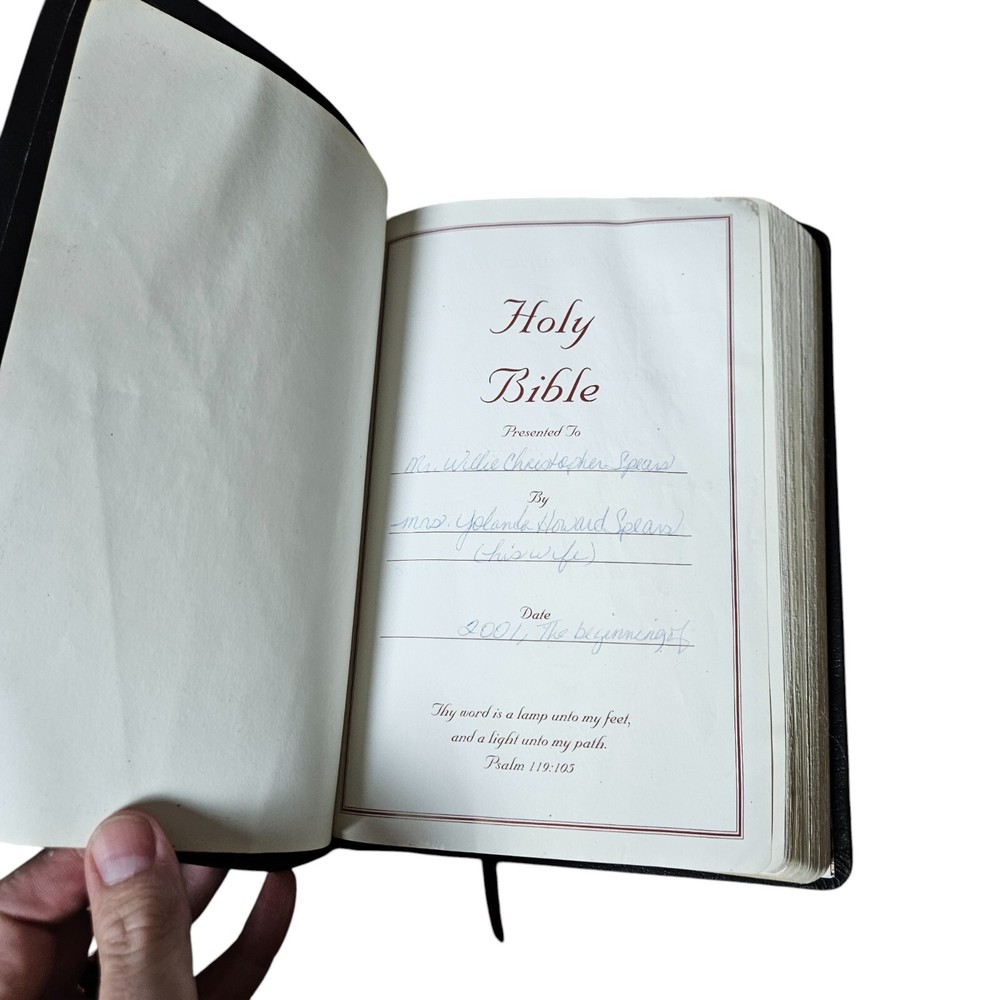 Holy
Bible
Presented To
Mr. Willie Christopher Spears
By
Mrs. Yolanda Howard Spears
(his wife)
Date
2001, The beginning of
Thy word is a lamp unto my feet,
and a light unto my path.
Psalm 119:105